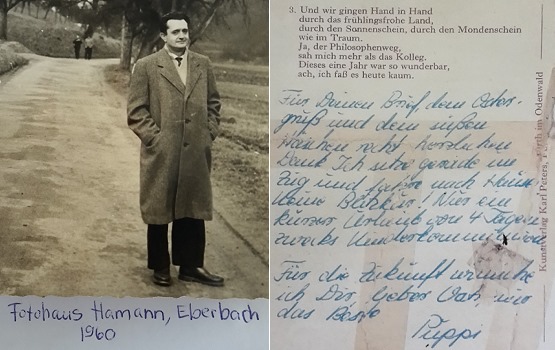 Fotohaus Hamann, Eberbach
1960
3. Und wir gingen Hand in Hand
durch das frühlingsfrohe Land,
durch den Sonnenschein, durch den Mondenschein
wie im Traum.
Ja, der Philosophenweg,
sah mich mehr als das Kolleg.
Dieses eine Jahr war so wunderbar,
ach, ich faß es heute kaum.
Für Deinen Brief, dem Oster-
gruß und dem süßen
Häschen recht herzlichen
Dank Ich sitze gerade im
Zug und fahre nach Hause
kurzer Urlaub von 4 Tagen
zwecks
Für die Zukunft wünsche
ich Dir, lieber nur
das Beste
Puppi
Kunstverlag Karl Peters, Fürth im Odenwald